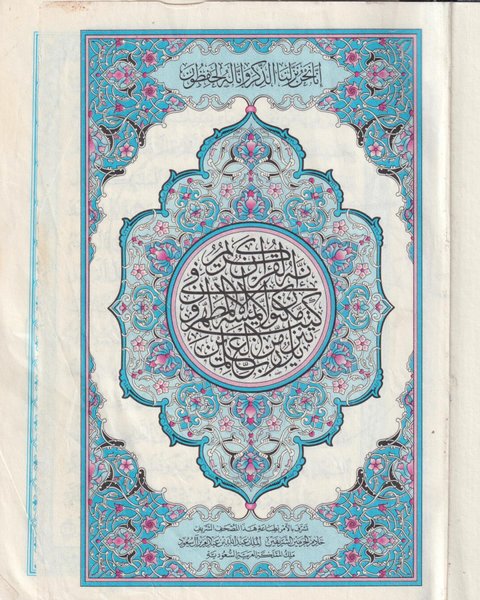 إنا نحن نزلنا الذكر وإنا له لحفظون
إنه لقرآن كريم
في كتب مكنون لا يمسه إلا المطهرون
تنزيل من رب العلمين
تشرف بالأمر بطباعة هذا المصحف الشريف
خادم الحرمين الشريفين الملك عبد الله بن عبد العزيز آل سعود
ملك المملكة العربية السعودية